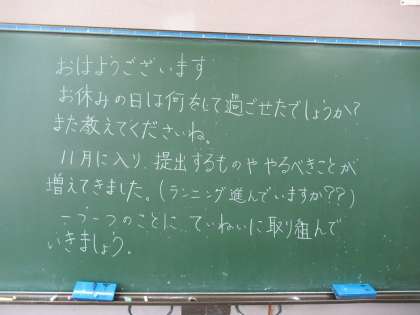 おはようございます
お休みの日は何をして過ごせたでしょうか?
また教えてくださいね。
11月に入り、提出するものや やるべきことが
増えてきました。(ランニング進んでいますか??)
一つ一つのことに ていねいに取り組んで
いきましょう。